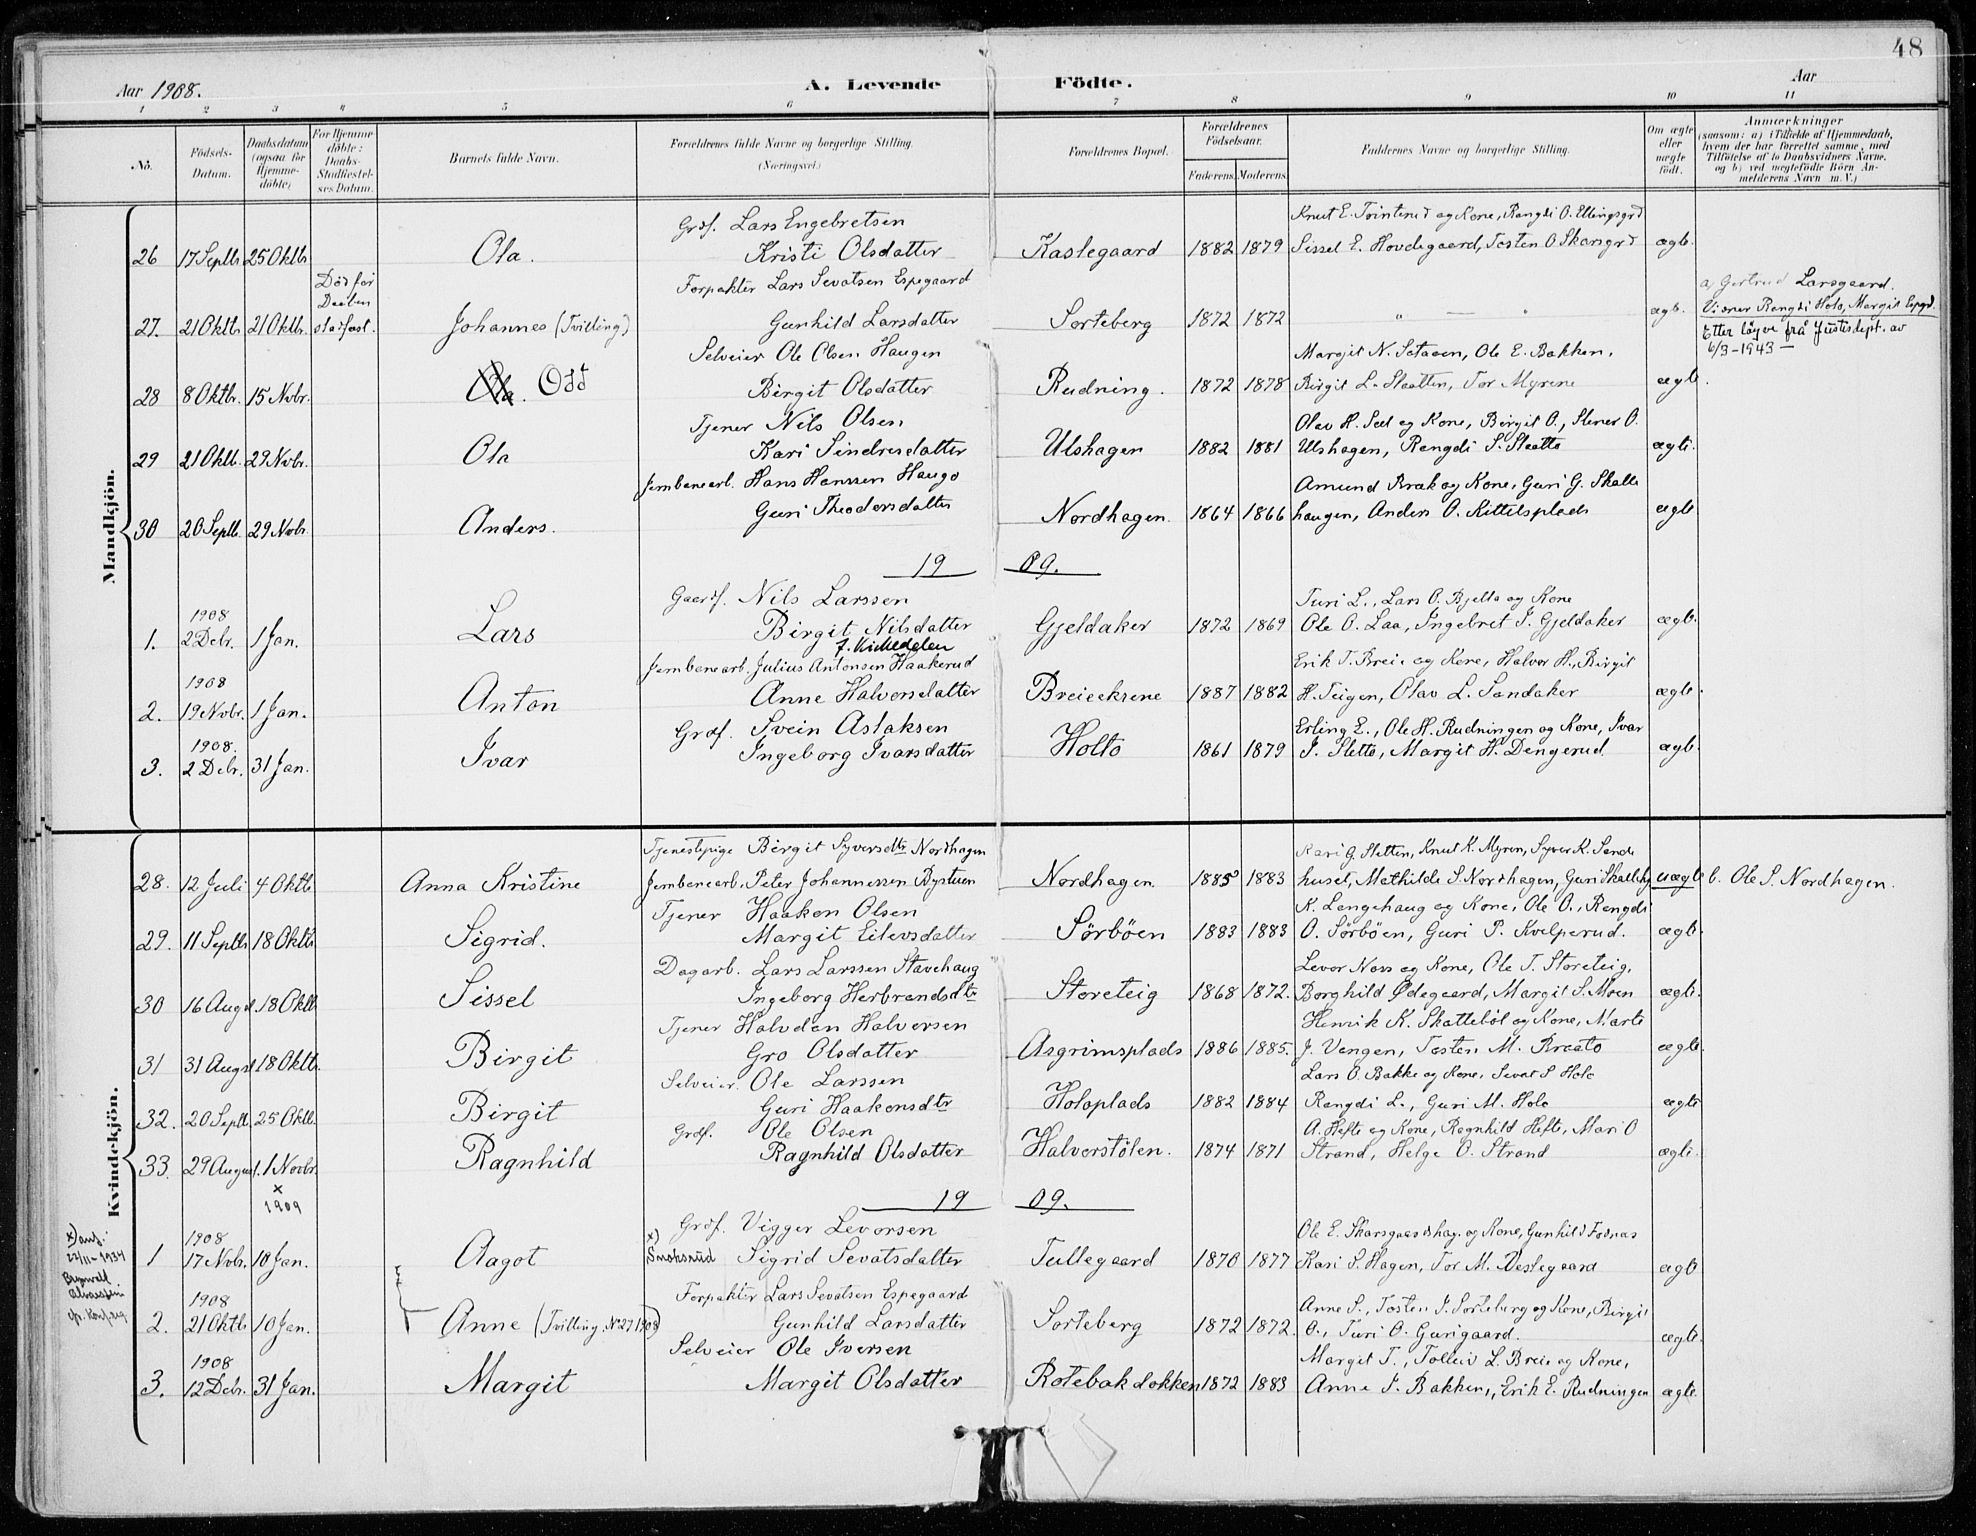 48
Aar 1908. A. Levende Födte. Aar
1 2 3 4 5 6 7 8 9 10 11
No. Födsels-Datum. Daabsdatum (ogsaa for Hjemme-döbte) For Hjemme-döbte: Daabs-Stadfæstel-ses Datum. Barnets fulde Navn. Forældrenes fulde Navne og borgerlige Stilling. (Næringsvei.) Forældrenes Bopæl. Forældrenes Födselsaar. Faderens. Moderens. Faddernes Navne og borgerlige Stilling. Om ægte eller uægte födt. Anmærkninger (saasom: a) i Tilfælde af Hjemmedaab, hvem der har forrettet samme, med Tilföielse af to Daabsvidners Navne, og b) ved uægtefödte Börn An-melderens Navn m. V.)
Mandkjön.
Grdf. Lars Engebretsen Knut E. Trinterud og Kone, Rangdi O. Ellingsgrd
26 17 Septb. 25 Oktb. Ola. Kristi Olsdatter Kaslegaard 1882 1879 Sissel E. Hovdegaard, Tosten O Skarsgrd ægte.
Død før Daaben Forpakter Lars Sevatsen Espegaard a) Gertrud Larsgaard.
27. 21 Oktb. 21 Oktbr. stadfæst. Johannes (Tvilling) Gunhild Larsdatter Sorteberg 1872 1872 " — " ægte. Visner Rangdi Holo, Margit Espgd.
Selveier Ole Olsen Haugen Margit N. Sataøen, Ole E. Bakken, Etter løyve frå Justisdept. av 6/3-1943 —
28 8 Oktbr. 15 Nvbr. Ola. Odd Birgit Olsdatter Rudning. 1872 1878 Birgit L. Slaatten, Tor Myrene ægte.
Tjener Nils Olsen Olav H. Sell og Kone, Birgit O., Stener O.
29 21 Oktb. 29 Nvbr. Ola Kari Sindresdatter Ulshagen 1882 1881 Ulshagen, Rangdi S. Slaatto ægte.
Jernbanearb. Hans Hanssen Haugo Amund Brak og Kone, Guri G. Skalle
30 20 Septb. 29 Nvbr. Anders. Guri Theodorsdatter Nordhagen. 1864 1866 haugen, Anders O. Kittelsplads ægte
19 09.
1908 Gaardf. Nils Larssen Turi L., Lars O. Bjella og Kone
1. 2 Debr. 1 Jan. Lars Birgit Nilsdatter Gjeldaker 1872 1869 Ole O. Laa, Ingebret I. Gjeldaker ægte.
1908 Jernbanearb. Julius Antonsen Haakerud Erik T. Breie og Kone, Halvor H., Birgit
2. 19 Nvbr. 1 Jan. Anton Anne Halvorsdatter Breieekrene 1887 1882 H. Teigen, Olav L. Sandaker ægte.
1908. Grdf. Svein Aslaksen Erling E., Ole H. Rudningen og Kone, Ivar
3. 2 Debr. 31 Jan. Ivar Ingeborg Ivarsdatter Holto 1861 1879 I. Sletto, Margit H. Dengerud. ægte.
Kvindekjön.
Tjenestepige Birgit Syversdtr Nordhagen Kari G. Sletten, Knut K. Myren, Syver K. Sande
28. 12 Juli 4 Oktb. Anna Kristine Jernbanearb. Peter Johannessen Bystuen Nordhagen 1885 1883 huset, Mathilde S. Nordhagen, Guri Skallehg uægte b. Ole S. Nordhagen.
Tjener Haakon Olsen K. Langehaug og Kone, Ole O., Rangdi
29. 11 Septb. 18 Oktb. Sigrid. Margit Eilevsdatter Sørbøen 1883 1883 O. Sørbøen, Guri P. Kvelperud. ægte.
Dagarb. Lars Larssen Stavehaug Levor Noss og Kone, Ole T. Storeteig,
30 16 Augst. 18 Oktb. Sissel Ingeborg Herbrandsdtr Storeteig 1868 1872. Borghild Ødegaard, Margit S. Moen ægte.
Tjener Halvdan Halvorsen Henrik K. Skattebøl og Kone, Marte
31 31 Augst 18 Oktb. Birgit Gro Olsdatter Asgrimsplads 1886 1885. J. Vangen, Tosten M. Braato ægte.
Selveier. Ole Larssen Lars O. Bakke og Kone, Sevat S Holo
32. 20 Septb. 25 Oktb. Birgit Guri Haakonsdtr Holoplads 1882 1884 Rangdi L., Guri M. Holo ægte
Grdf. Ole Olsen A. Hefte og Kone, Ragnhild Hefte, Mari O
33. 29 August. 1 Novbr. Ragnhild Ragnhild Olsdatter Halvorstølen. 1874 1871 Strand, Helge O. Strand ægte.
x 1909
19 09.
1908 Grdf. Vigger Levorsen Ole E. Skarsgaardshag. og Kone, Gunhild Fosnas
1 17 Nvbr. 10 Jan. Aagot x) Snoksrud Sigrid Sevatsdatter Tullegaard 1870 1877 Kari S. Hagen, Tor M. Vestegaard ægte
1908 Forpakter Lars Sevatsen Espegaard Anne S., Tosten J. Sorteberg og Kone, Birgit
2. 21 Oktb. 10 Jan. Anne (Tvilling. No 27 1908) Gunhild Larsdatter Sorteberg 1872 1872. O., Turi O. Gurigaard. ægte.
1908 Selveier Ole Iversen Margit T., Tolleiv L. Breie og Kone,
3. 12 Debr. 31 Jan. Margit Margit Olsdatter Rotebakdokken 1872 1883 Anne J. Bakken, Erik E. Rudningen ægte.